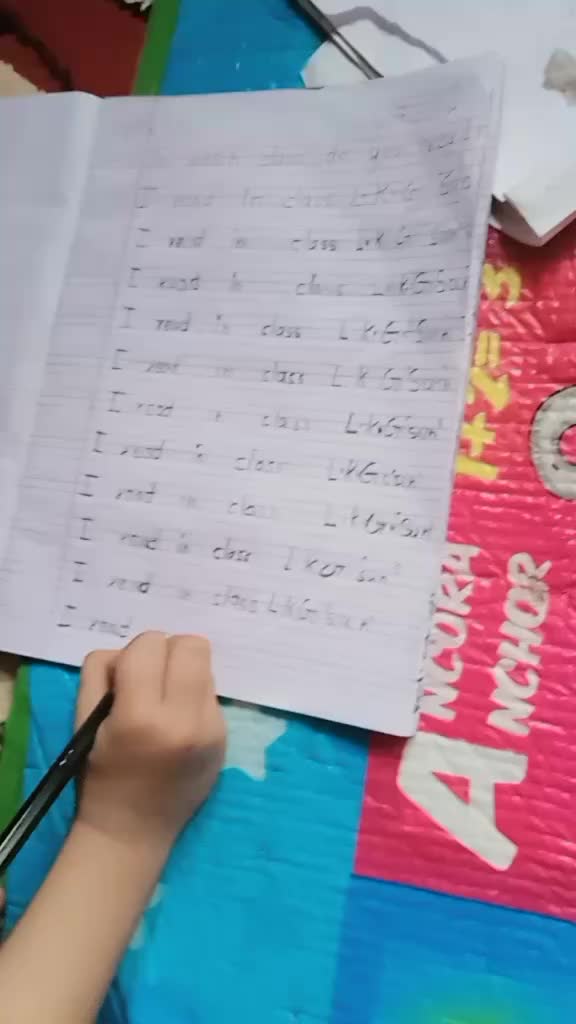 class do you read
I read in class L.K.G Sun
I read in class L.K.G Sun
I read in class L.K.G Sun
I read in class L.K.G "Sun"
I read in class L.K.G "Sun"
I read in class L.K.G "Sun"
I read in class L.K.G "Sun"
I read in class L.K.G "Sun"
I read in class L.K.G "Sun"
I read in class L.K.G "Sun"
I read
1+2=3
ANCORA
ANCHOR